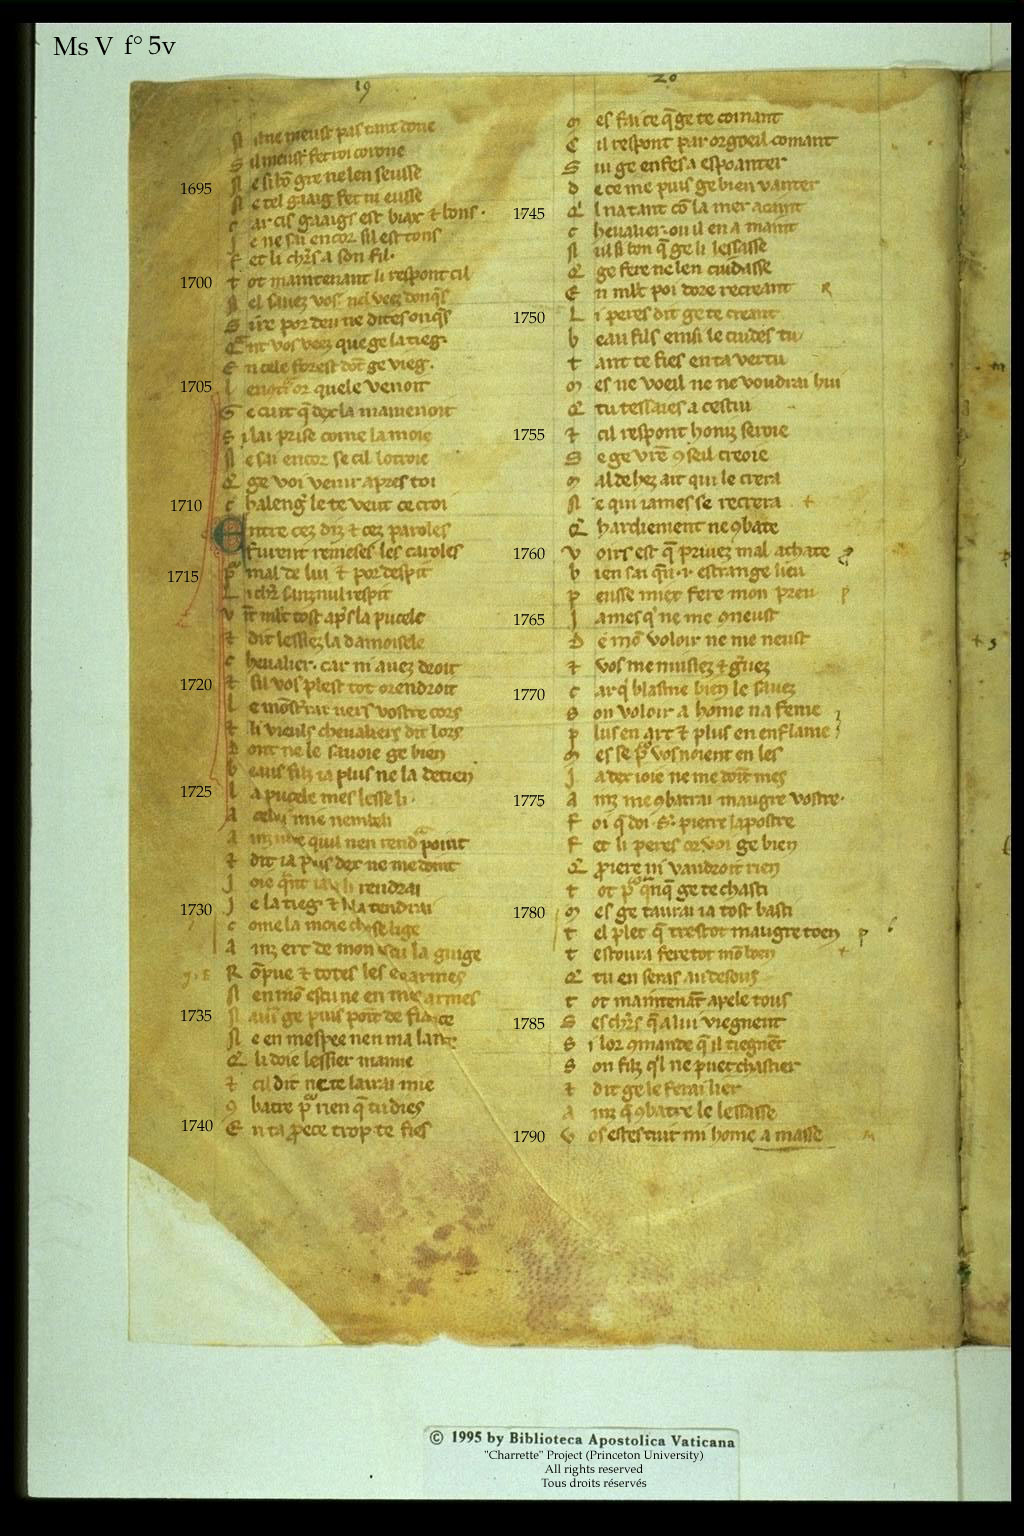 Ms V f° 5v
19
20
N ul ne meust pas tant done
S il meust fet roi corone
1695
N e si bō gre ne len seusse
N e tel gaaig fet ni eusse
c ar cis gaaigs est biax ⁊ bons.
J e ne sai encor sil est tons
F et li chrs a son fil.
1700
t ot maintenant li respont cil
N el sauez vos nel veez donqs
S ire por deu ne dites onqs
Q nt vos veez que ge la tieg
E n cele forest dōt ge vieg.
1705
l encōtr or quele venoit
G e cuit q dex la mamenoit
S i lai prise come la moie
N e sai encor se cil lotroie
Q ge voi venir apres toi
1710
c haleng le te veut ce croi
E ntre cez diz ⁊ cez paroles
furent remeses les caroles
1715
p mal de lui ⁊ por despit
L i chr sanz nul respit
v īt mlt tost aps la pucele
⁊ dit lessiez la damoisele
c heualier. car ni auez droit
1720
⁊ sil vos plest tot orendroit
l e mōstrai uers vostre cors
⁊ li vieuls cheualiers dit lors
D ont ne le sauoie ge bien
b eaus filz ia plus ne la detien
1725
l a pucele mes lesse li.
A celui mie nembeli
A inz iure quil nen rendra point
⁊ dit ia puis dex ne me doint
J oie qnt ia li rendrai
1730
J e la tieg ⁊ la tendrai
c ome la moie chose lige
A inz ert de mon escu la guige
R ōpue ⁊ totes les enarmes
N en mō escu ne en mes armes
1735
N aurai ge puis point de fiance
N e en mespee nen ma lance
Q li doie lessier mamie
⁊ cil dit ne te lairai mie
9 batre p rien q tu dies
1740
E n ta proece trop te fies
m es fai ce q ge te comant
C il respont par orgoeil comant
S ui ge enfes a espoanter
d e ce me puis ge bien vanter
1745
Q l na tant cō la mer acaint
c heualier. ou il en a maint
N ul si bon q ge li lessasse
Q ge fere ne len cuidasse
E n mlt poi dore recreant R
1750
L i peres dit ge te creant
b eau fils einsi le cuides tu
t ant te fies en ta vertu
m es ne voeil ne ne voudrai hui
Q tu tessaies a cestui
1755
⁊ cil respont honiz seroie
S e ge vrē 9seil creoie
m aldehez ait qui le crera
N e qui iames se recrera +
Q hardiement ne 9bate
1760
v oirs est q priuez mal achate
b ien sai qui .i. estrange lieu
p eusse miex fere mon preu p
1765
J ames q ne me coneust
D e mō voloir ne me neust
⁊ vos me nuisiez ⁊ greuez
1770
c ar q blasme bien le sauez
s on voloir a home na feme
p lus en art ⁊ plus en enflame
m es se p vos noient en les
J a dex ioie ne me doīt mes
1775
A inz me 9batrai maugre vostre.
F oi q doi .S. pierre lapostre
F et li peres or voi ge bien
Q proiere ni vaudroit rien
t ot p qnq ge te chasti
1780
m es ge taurai ia tost basti
t el plet q trestot maugre toen p
t estoura fere tot mō boen +
Q tu en seras au desous
t ot maintenāt apele tous
1785
S es chrs q a lui viegnent
S i lor 9mande q il tiegnēt
S on filz ql ne puet chastier
⁊ dit ge le ferai lier
A inz q 9batre le lessasse
1790
V os estes tuit mi home a masse
© 1995 by Biblioteca Apostolica Vaticana
"Charrette" Project (Princeton University)
All rights reserved
Tous droits réservés